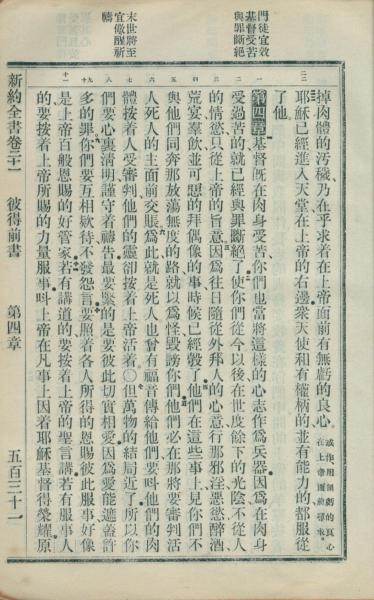 門徒宜效
基督受苦
與罪斷絕
末世將至
宜儆醒祈
禱
掉肉體的汚穢乃在乎求着在上帝面前有無虧的良心或作用無虧的良心在上帝面前尋求
二二
耶穌已經進入天堂在上帝的右邊衆天使和有權柄的並有能力的都服從
了他
第四章
一
基督旣在肉身受苦你們也當將這樣的心志作爲兵器因爲在肉身
受過苦的就已經與罪斷絕了
二
使你們從今以後在世度餘下的光陰不從人
的情慾只從上帝的旨意
三
因爲往日隨從外邦人的心意行那邪淫惡慾醉酒
荒宴羣飲並可惡的拜偶像的事時候已經彀了
四
他們在這些事上見你們不
與他們同奔那放蕩無度的路就以爲怪毀謗你們
五
他們必在那將要審判活
人死人的主面前交賬
六
爲此就是死人也曾有福音傳給他們要呌他們的肉
體按着人受審判他們的靈卻按着上帝活着○
七
但萬物的結局近了所以你
們要心裏淸明謹守着禱告
八
最要緊的是要彼此切實相愛因爲愛能遮蓋許
多的罪
九
你們要互相款待不發怨言
十
要照着各人所得的恩賜彼此服事好像
是上帝百般恩賜的好管家
十一
若有講道的要按着上帝的聖言講若有服事人
的要按着上帝所賜的力量服事呌上帝在凡事上因着耶穌基督得榮耀原
新約全書卷二十一 彼得前書 第四章 五百三十一